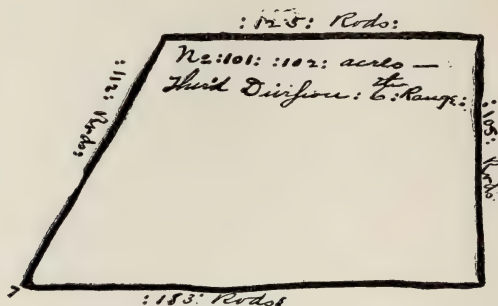 : 125: Rods:
No:101: :102: acres —
Third Division: 6th: Range:
:112: Rods:
:105: Rods:
:183: Rods: